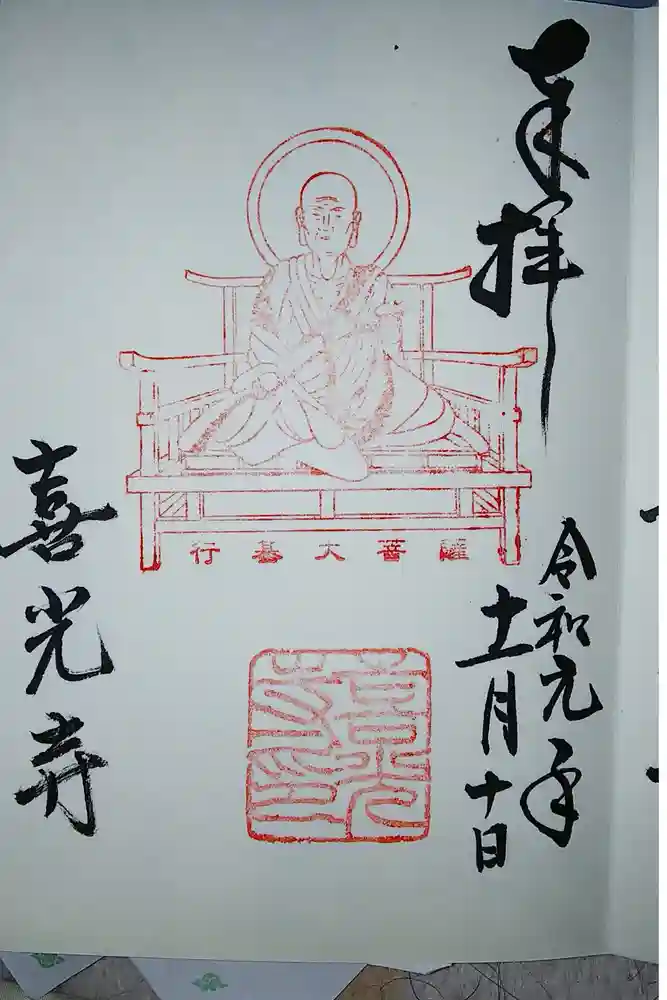 奉拝
令和元年
十一月十日
行基大菩薩
喜光
寺印
喜光寺